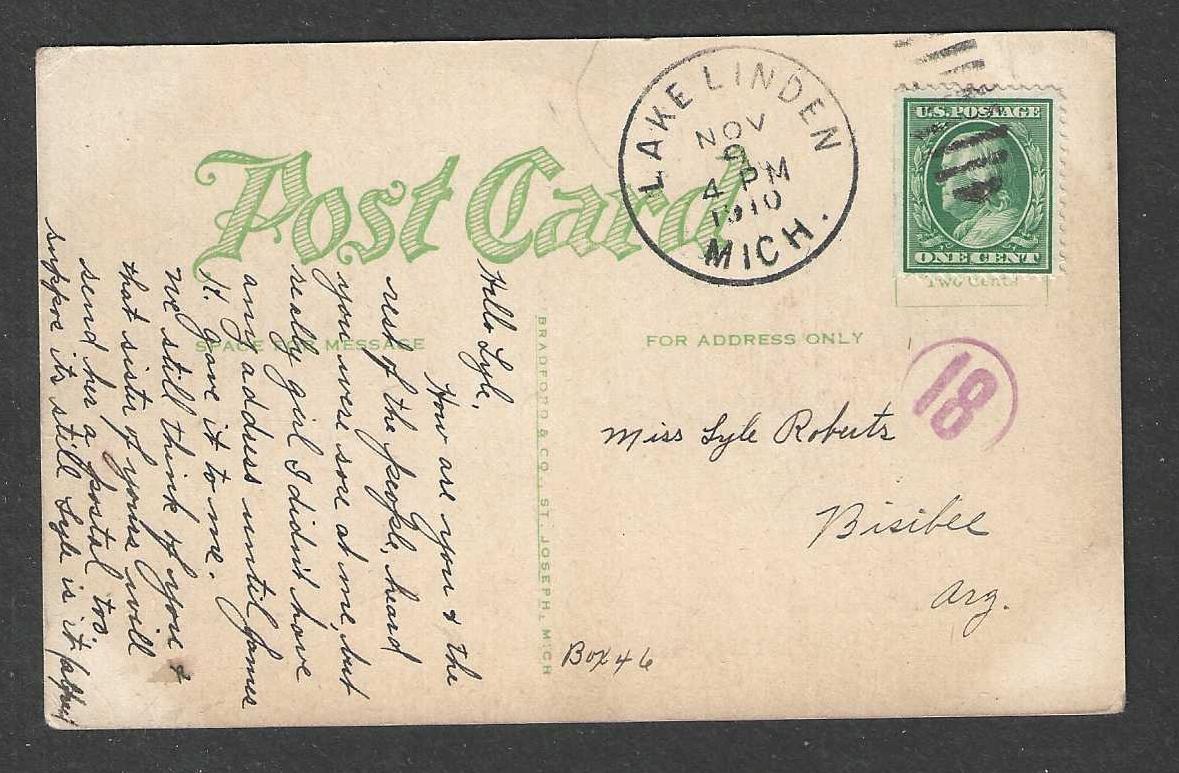 Post Card
LAKE LINDEN
NOV
9
4 PM
1910
MICH.
U.S. POSTAGE
ONE CENT
Two Cents
SPACE FOR MESSAGE
FOR ADDRESS ONLY
BRADFORD & CO., ST. JOSEPH, MICH
18
Hello Lyle,
How are you & the
rest of the people, heard
you were sore at me, but
really girl I didn't have
any address until James
H. gave it to me.
We still think of you &
that sister of yours will
send her a postal too.
suppose its still Lyle is it
Miss Lyle Roberts
Bisibee
Arz.
Box 46